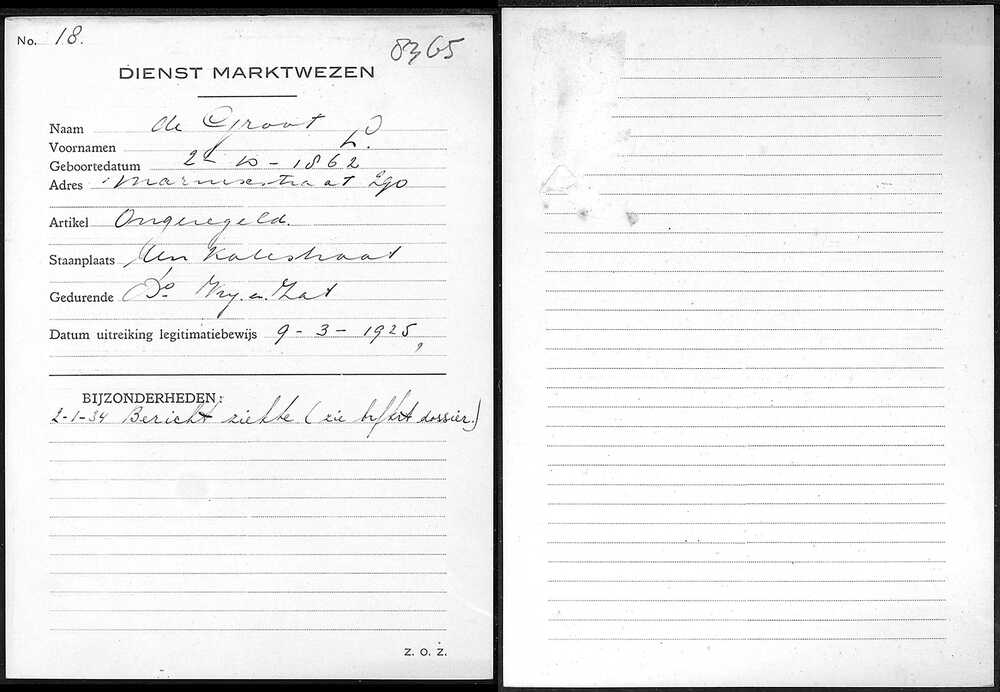 No. 18.
8365
DIENST MARKTWEZEN
Naam de Groot
Voornamen L.
Geboortedatum 2-10-1862
Adres Marnixstraat 290
Artikel Ongeregeld.
Staanplaats
Gedurende Do. Vry. en Zat
Datum uitreiking legitimatiebewijs 9-3-1925,
BIJZONDERHEDEN:
2-1-34 Bericht ziekte (zie dossier.)
Z. O. Z.